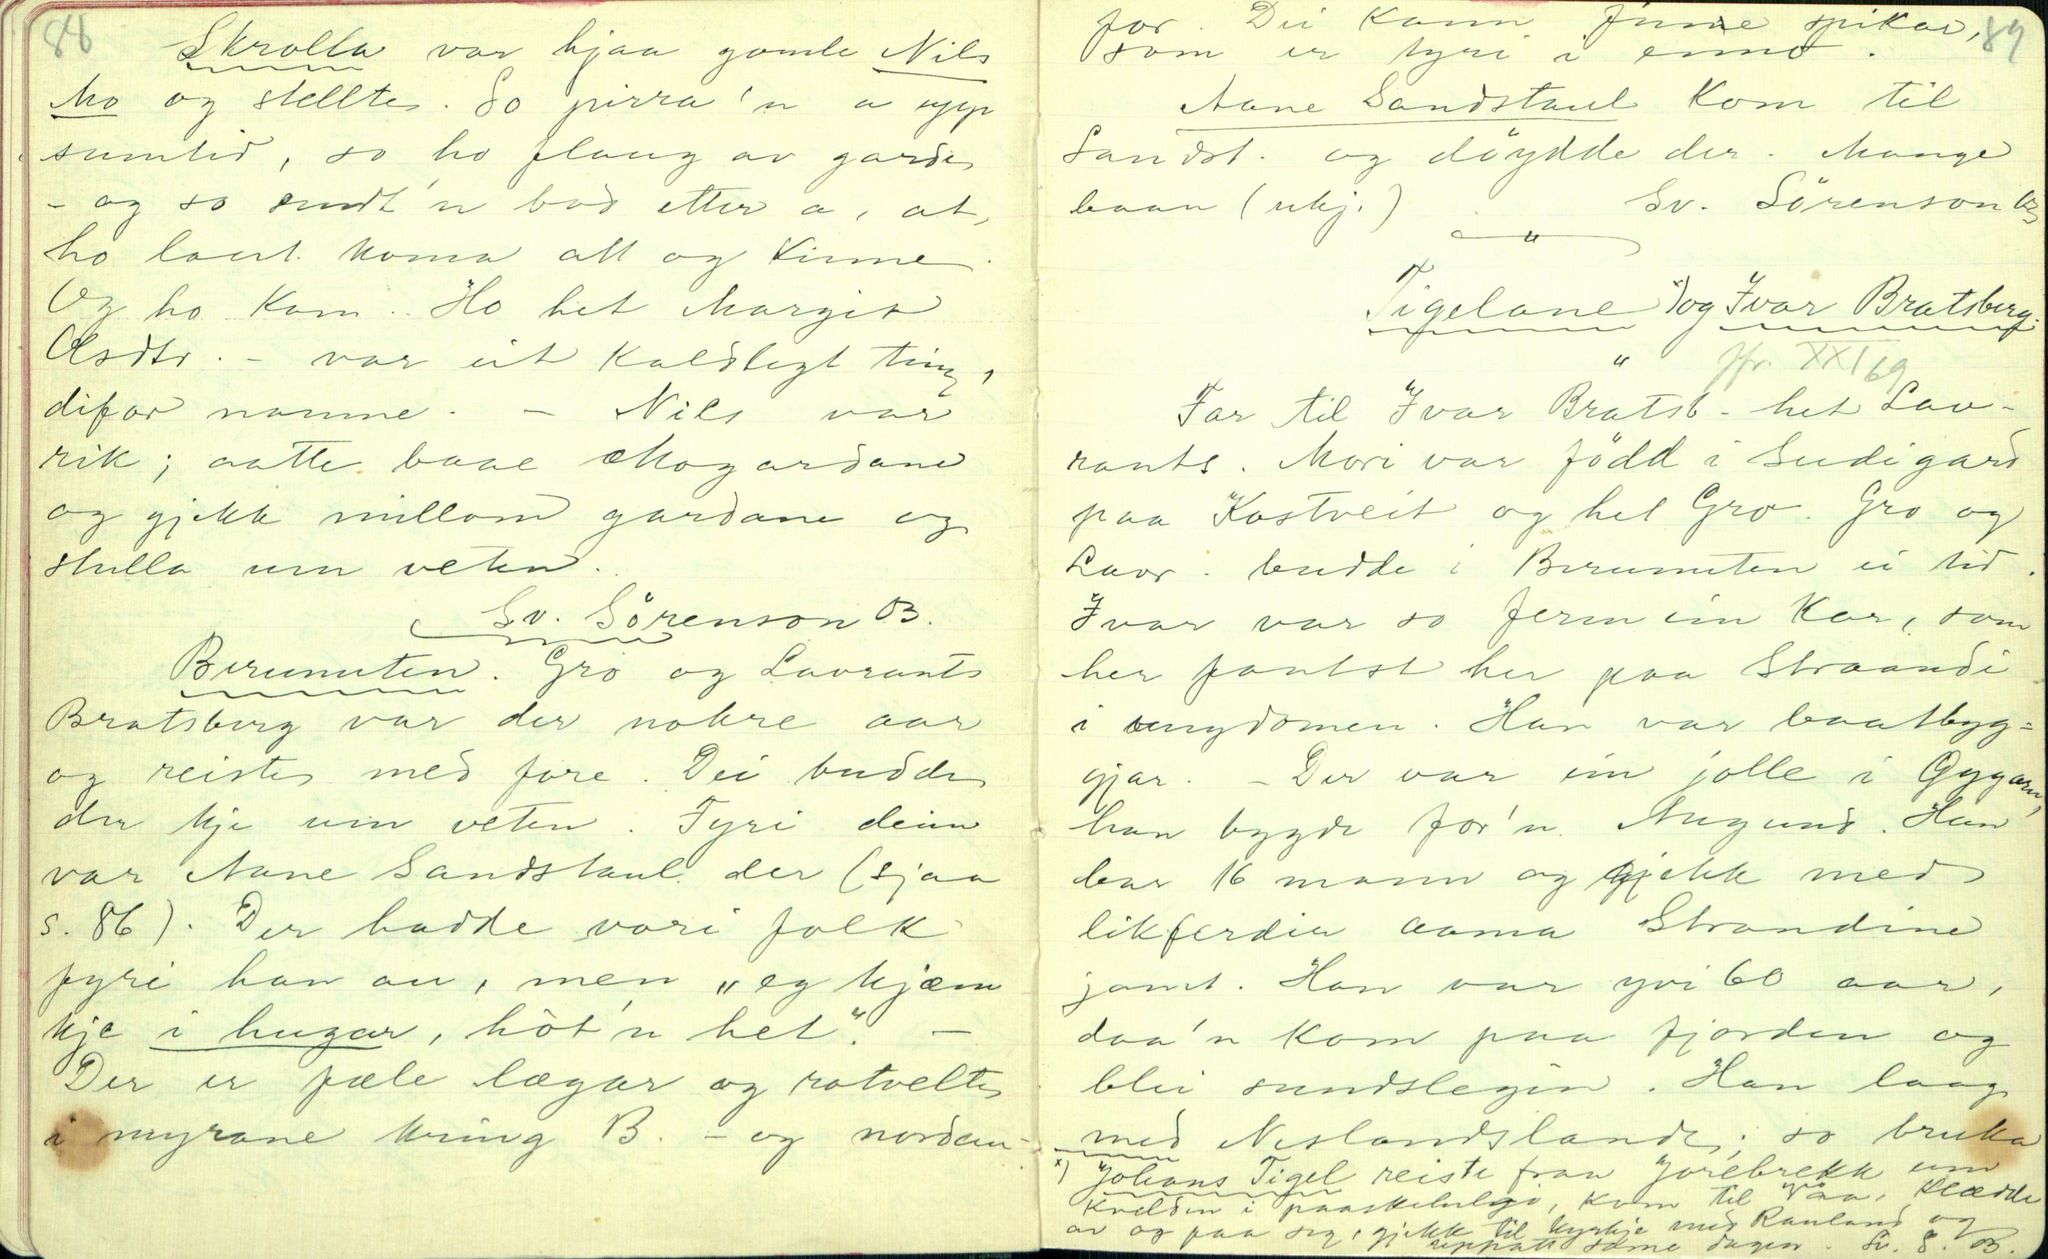 88
Skrolla var hjaa gamle Nils
Mo og stellte. So pirra'n a upp
sumtid, so ho flaug av garde
- og so sendt'n bod etter a, at
ho laut koma att og kinne.
Og ho kom. Ho het Margit
Olsdtr. - var eit kaldslegt ting,
difor namne. - Nils var
rik; aatte baae Mogardane
og gjekk millom gardane og
stulla um veten.
Sv. Sörenson B.
Birunuten. Gro og Lavrants
Bratsberg var der nokre aar
og reiste med fore. Dei budde
der kje um veten. Fyri deim
var Aane Sandstaul der (sjaa
s. 86). Der hadde vori folk
fyri han au, men "eg kjæm
kje i hugar, hòt'n het". -
Der er fæle lægar og rotvelte
i myrane kring B. - og nordan-
89
for. Dei kann finne spikar,
som er tyri i enno.
Aane Sandstaul kom til
Sandst. og döydde der. Mange
baan (ukj.) Sv. Sörenson B
"
Tigelane x) og Ivar Bratsberg.
" jfr. XXI 69
Far til Ivar Bratsb. het Lav-
rants. Mori var född i Sudigard
paa Kostveit og het Gro. Gro og
Lavr. budde i Birunuten ei tid.
Ivar var so ferm ein kar, som
her fantst her paa Straandi
i ungdomen. Han var baatbyg-
gjar. - Der var ein jolle i Gygarn,
han bygde for'n Augund. Han
bar 16 mann og gjekk med
likferdir aama Strondine
jamt. Han var yvi 60 aar,
daa'n kom paa fjorden og
blei sundslegin. Han laag
med Neslandslande; so bruka
x) Johans Tigel reiste fraa Jorebrekk um
kvelden i paaskehelgji, kom til Vaa, klædde
av og paa seg, gjekk til kyrkje med Rauland og
same dagen. Sv. S. B.